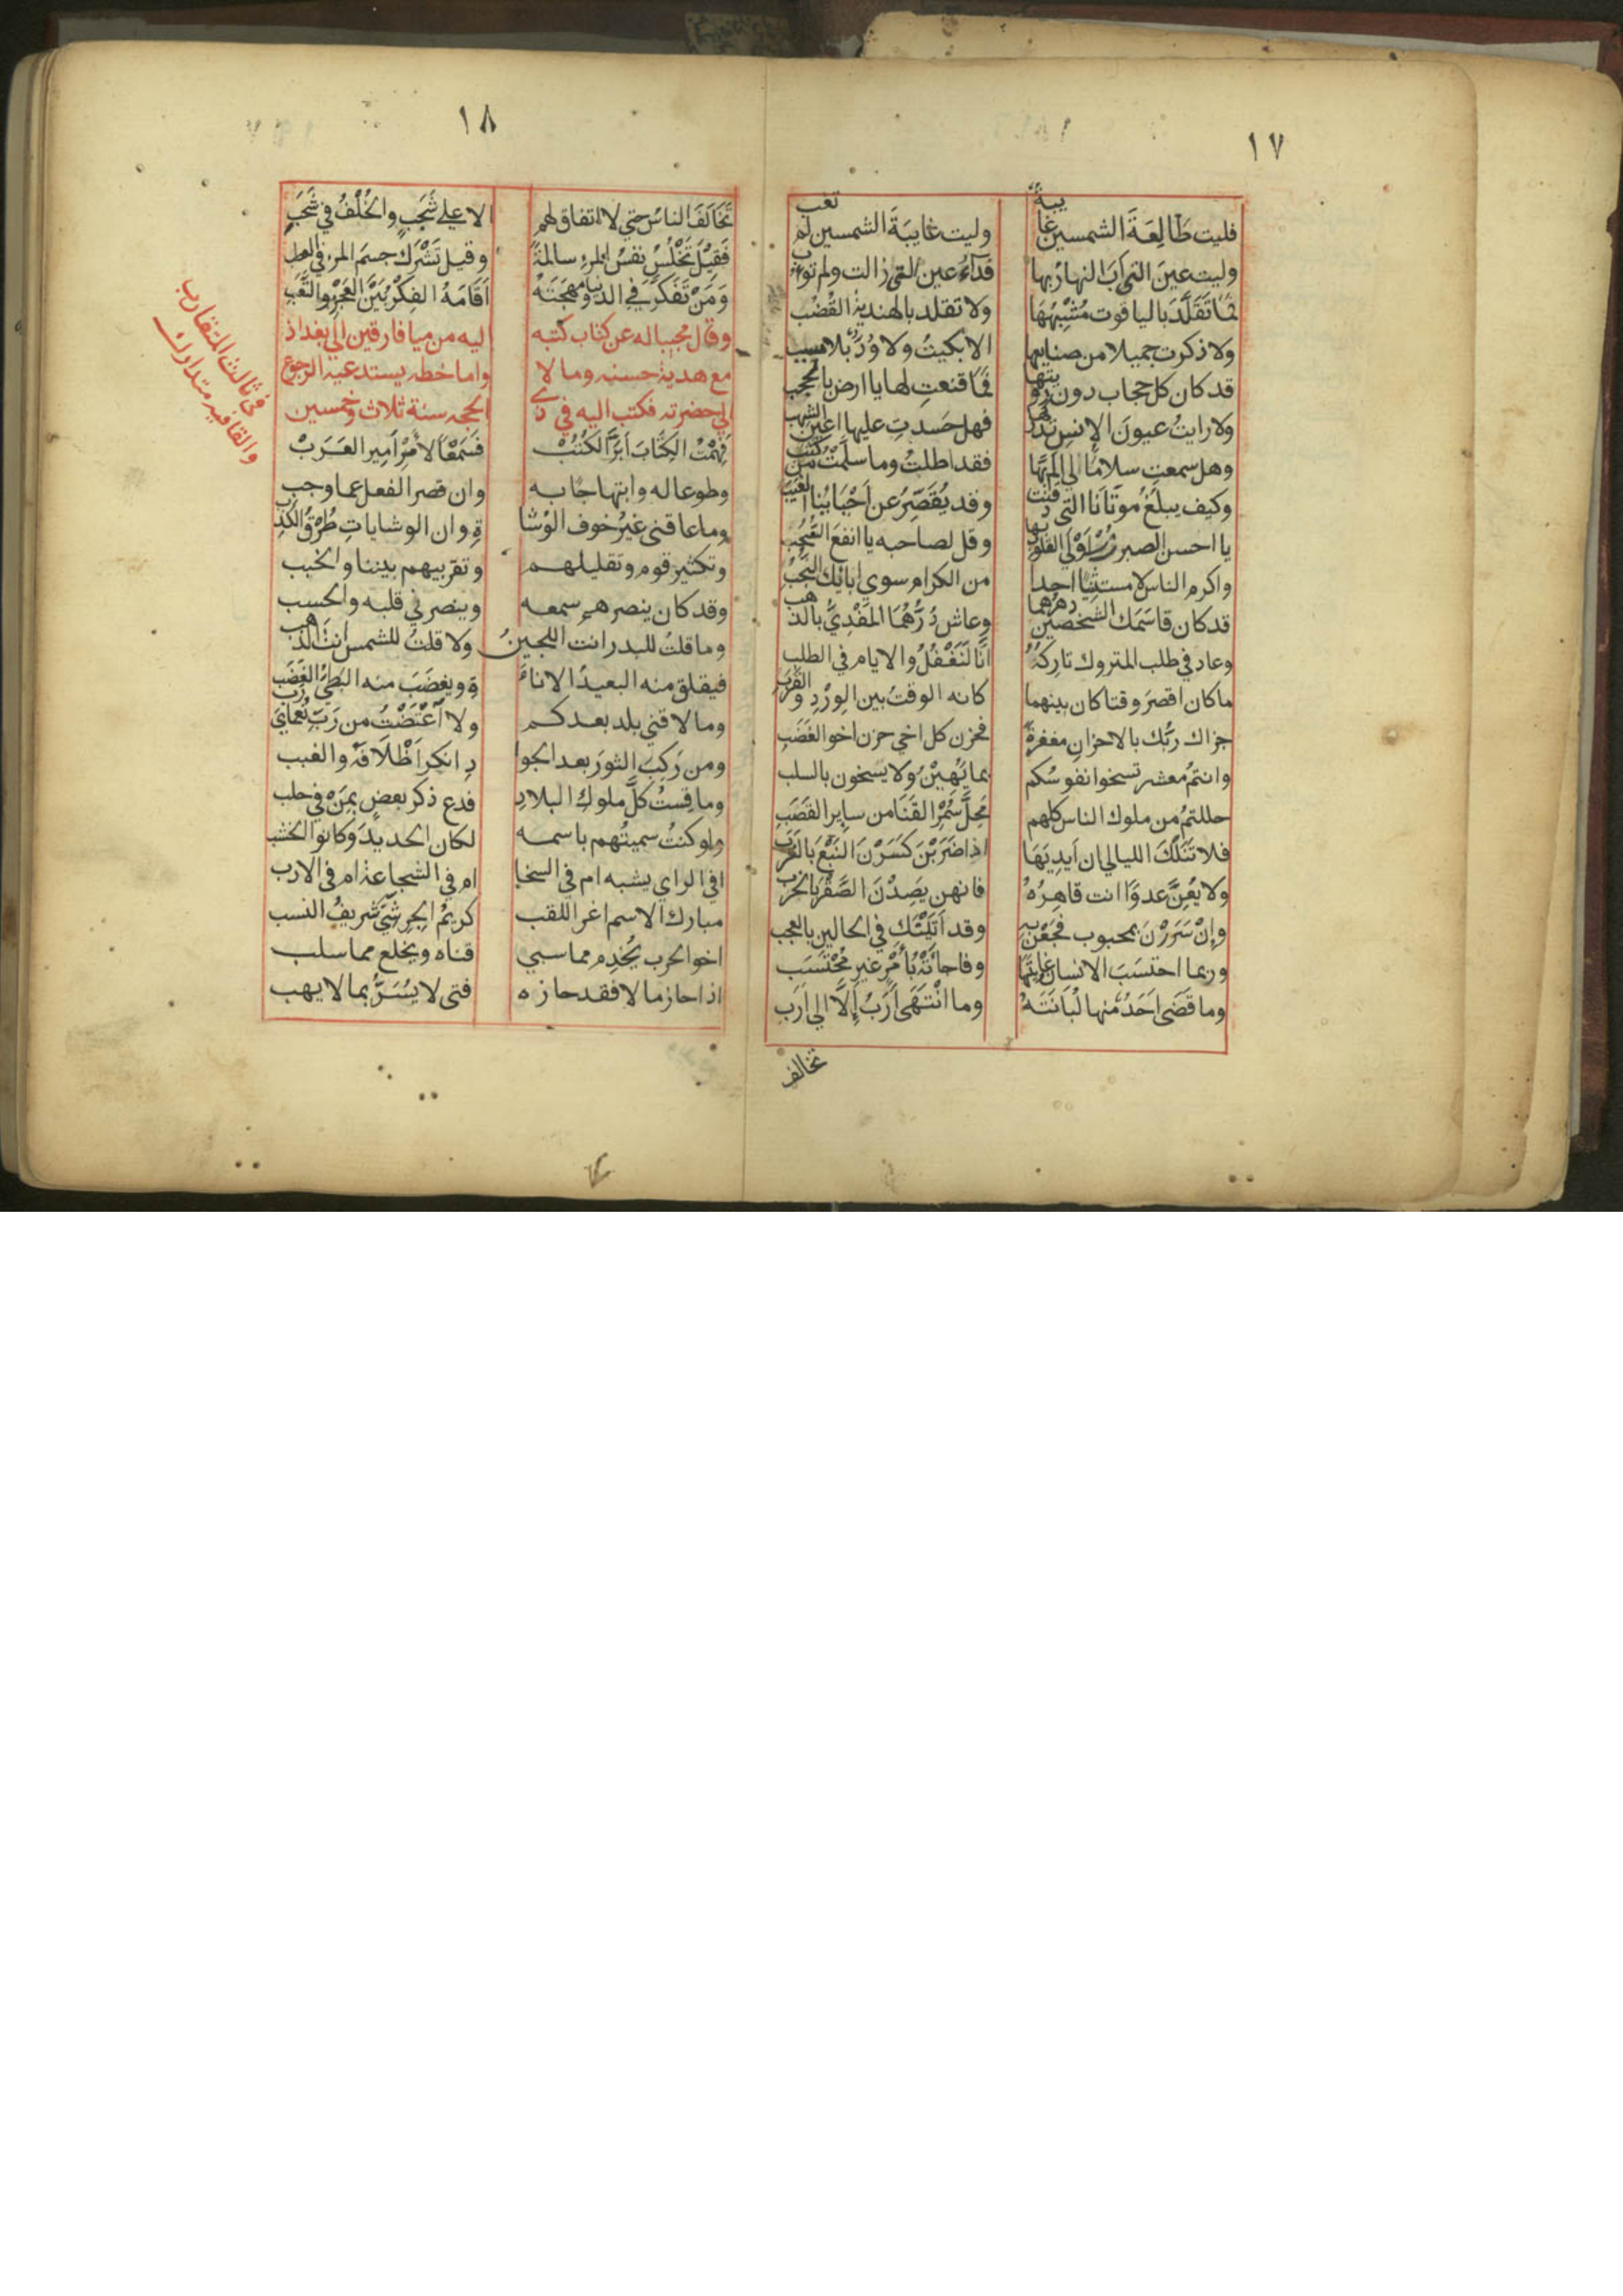 ١٧
فليت طَالِعَةَ الشمسين غايبةٌ وليت غايبَةَ الشمسين لم تغب
وليت عينَ التي آبَ النهارُ بها فدآءُ عين التي زالت ولم توب
فما تَقَلَّدَ بالياقوت مُشْبِهُهَا ولا تقلد بالهندية القُضُب
ولا ذكرت جميلا من صنايعها الا بكيتُ ولا وُدٌّ بلا سبب
قد كان كل حجاب دون رويتها فما قنعتِ لها يا ارض بالحجب
ولا رايتُ عيونَ الإنسِ تدركها فهل حَسدتِ عليها اعين الشهب
وهل سمعتِ سلامًا لي المَّ بها فقد اطلتُ وما سلّمتُ من كثب
وكيف يبلغُ موتانا التي دفنت وقد يُقَصِّرُ عن اَحْيَائنا الغيب
يا احسن الصبر زُرْ اَوْلَي القلوب بها وقل لصاحبه يا انفعَ السُّحُب
واكرم الناس لا مستثنيًا احدا من الكرام سوي ابائك النُّجُب
قد كان قاسَمَك الشخصين دهرهما وعاش دُرُّهُمَا المَفْدِيُّ بالذهب
وعاد في طلب المتروك تارِكُهُ انَّا لَنَغْفُلُ والايام في الطلب
ماكان اقصرَ وقتا كان بينهما كانه الوقتُ بين الوِرْدِ والقَرَب
جزاك ربُّك بالاحزانِ مغفرةً فحزن كل اخي حزن اخو الغَضَبِ
وانتمُ معشر تسخوا نفوسُكم بما يَهَبْنَ ولا يسخون بالسلب
حللتمُ من ملوك الناس كلهم مَحِلَّ سُمْرِ القَنَا من ساير القَصَبِ
فلا تَنَلْكَ الليالي ان اَيدِيَهَا اذا ضَرَبْنَ كَسَرْنَ النَبْعَ بالغَرَب
ولا يُعِنَّ عدوًّا انت قاهِرُهُ فانهن يَصِدْنَ الصَّقْرَ بالخرب
وإنْ سَرَرْنَ بمحبوب فجَعْنَ به وقد اَتَيْنَك في الحالين بالعجب
وربما احتسَبَ الانسان غايتَهَا وفاجأتْهُ بأمْرٍ غيرِ مُحْتَسَب
وما قَضَي اَحَدٌ منها لُبَانَتَهُ وما انْتَهَي اَرَبٌ إلَّا الي اَرَبِ
تخالف
١٨
تَخَالَفَ الناسُ حتي لا اتفاق لهم الا علي شَجَبٍ والخُلْفُ في شَجَبِ
فَقِيلَ تَخْلُصُ نفسُ المرءِ سالمةً وقيل تَشْرَكُ جسمَ المرء في العطب
وَمَنْ تَفَكَّرَ في الدنيا ومُهْجَتَهُ اَقَامَهُ الفِكْرُ بَيْنَ العَجْزِ والتَّعَبِ
وقال مجيبا له عن كتاب كتبه اليه من ميافارقين الي بغداد
مع هدية حسنه ومالا واما خطه يستدعيه الرجوع
الي حضرته فكتب اليه في ذي الحجه سنة ثلاث وخمسين
في ثالث المتقارب
والقافيه متدارك
فَهِمْتُ الكِتَابَ اَبَرَّ الكُتُبْ فَسَمْعًا لأمْرِ اَمِيرِ العَرَبْ
وطوعا له وابتهاجًا به وان قصر الفعل عما وجب
وما عاقني غيرُ خوف الوُشا ةِ وان الوشاياتِ طُرْقُ الكَذِب
وتكثير قوم وتقليلهم وتقريبهم بيننا والخبب
وقد كان ينصرهم سمعه وينصرني قلبه والحسب
وما قلتُ للبدر انت اللجينُ ولا قلتُ للشمس انتَ الذهب
فيقلق منه البعيدُ الانا ةِ ويغضَبَ منه البَطِيْءُ الغَضَب
وما لاقني بلد بعدكم ولا اَعْتَضْتُ من رَبّ نُعمايَ رب
ومن رَكِبَ الثورَ بعد الجوا دِ انكر اَظْلَافَهُ والغبب
وما قِستُ كلَّ ملوك البلادِ فدع ذكر بعضٍ بمَنْ في حلب
ولو كنتُ سميتُهم باسمه لكان الحديدَ وكانوا الخشب
افي الراي يشبه ام في السخا ام في الشجاعة ام في الادب
مبارك الاسم اغر اللقب كريمُ الجِرِشّي شريفُ النسب
اخو الحرب يُخدِم مما سبي قناه ويخلع مما سلب
اذا حاز مالا فقد حازه فتي لا يُسَرُّ بما لا يهب